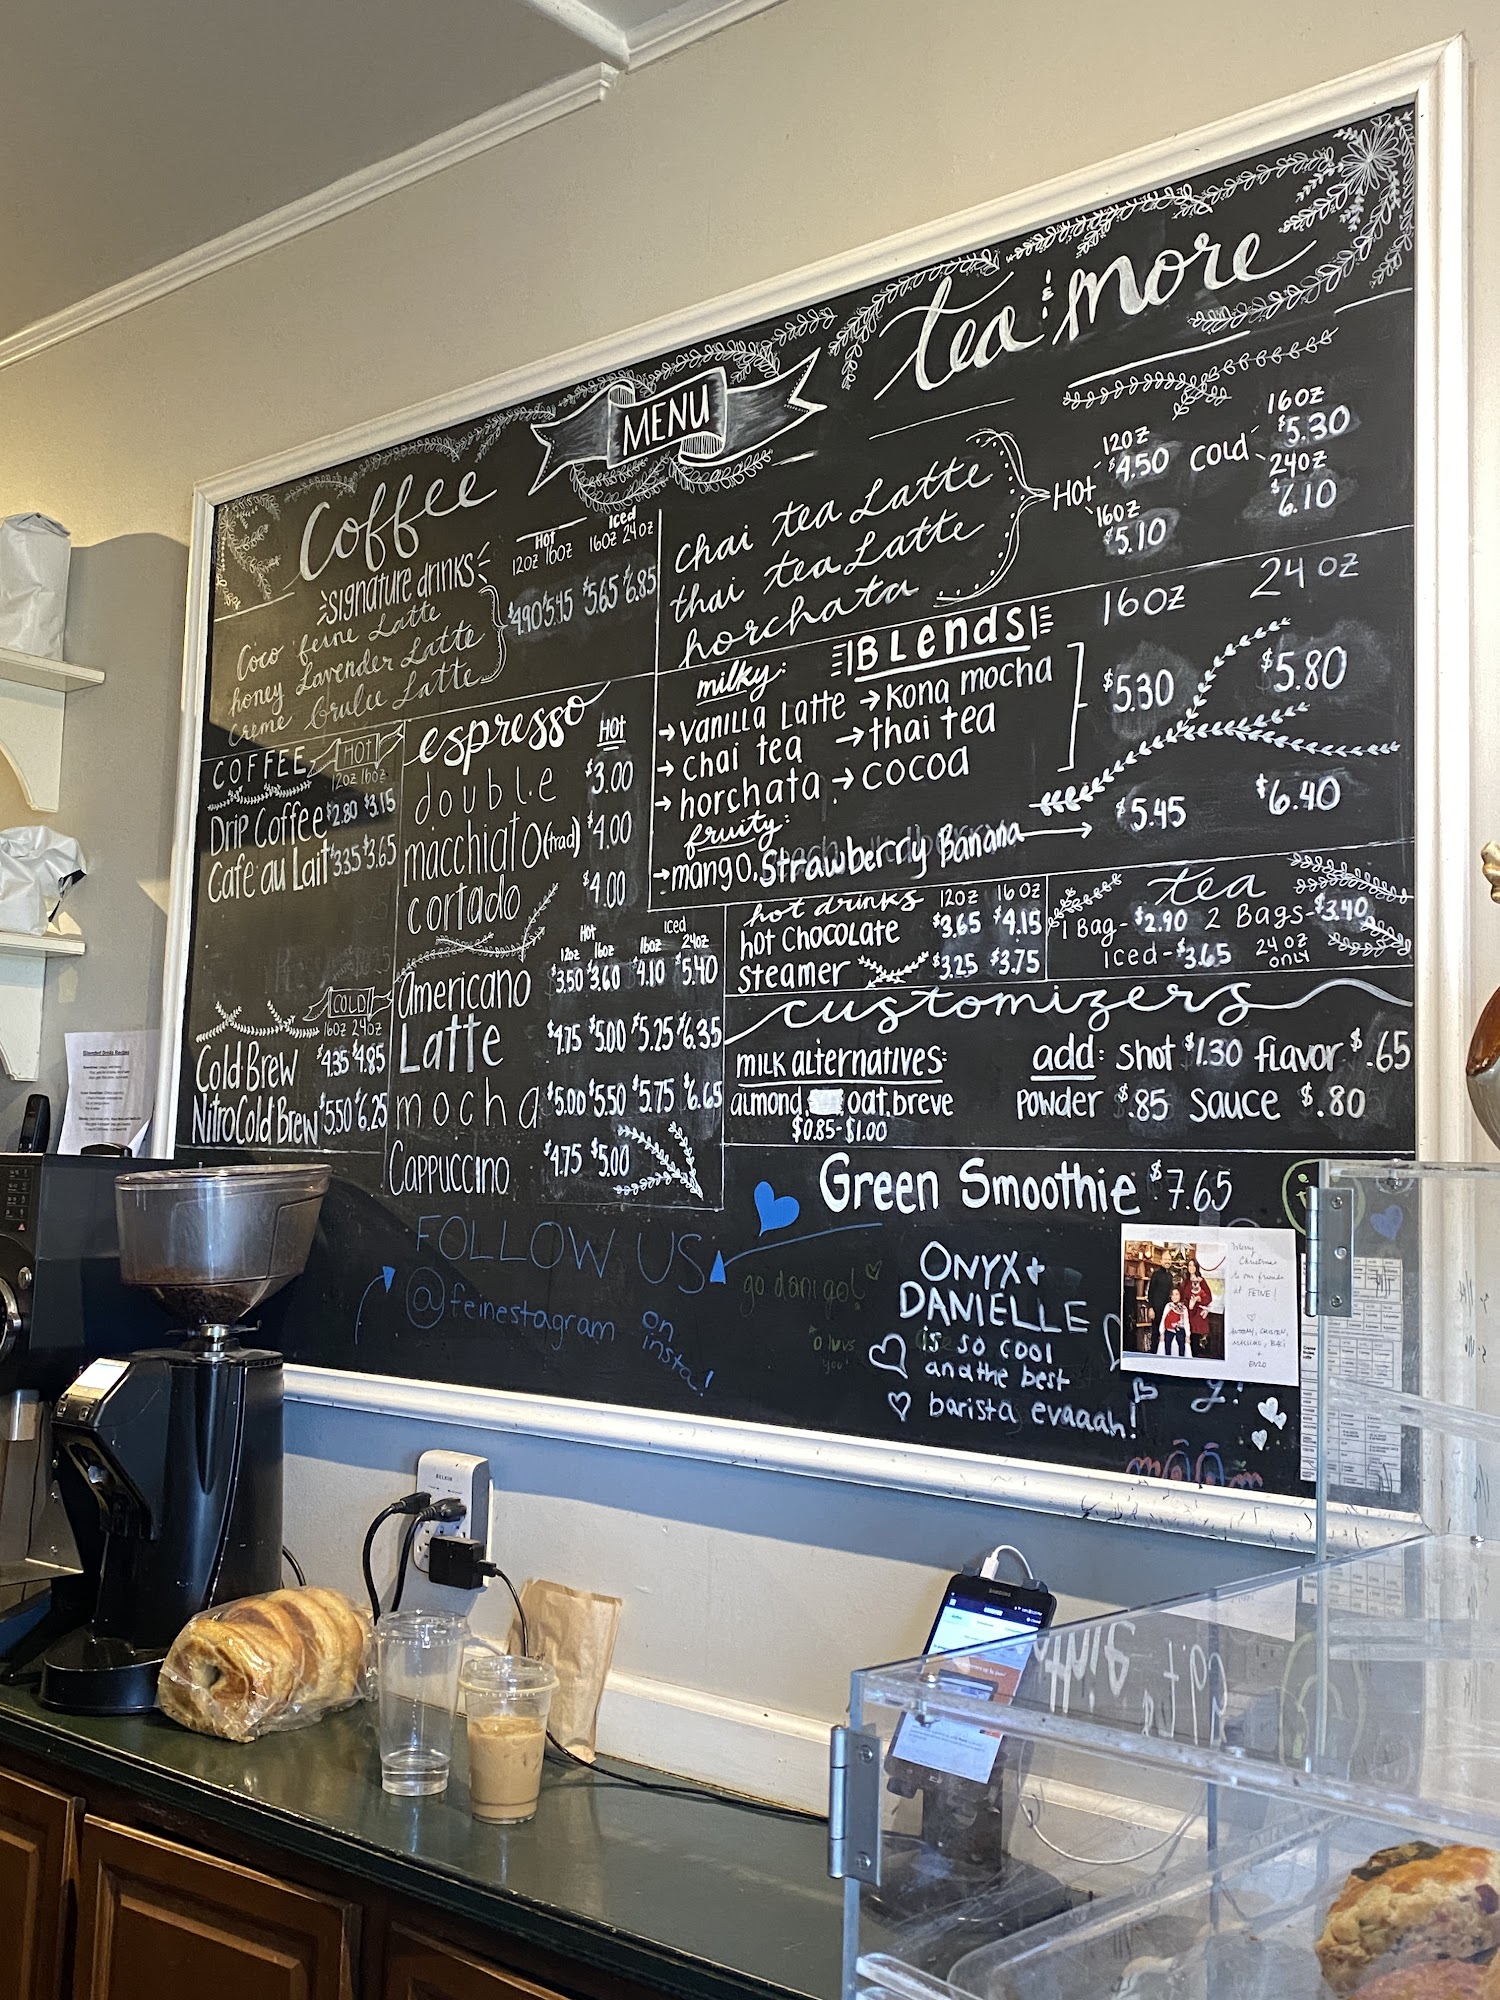 MENU
Coffee
signature drinks
Hot
Iced
12oz 16oz
16oz 24oz
Coco feine Latte
honey Lavender Latte
creme brulee Latte
$4.90 $5.45 $5.65 $6.85
COFFEE
HOT
12oz 16oz
Drip Coffee $2.80 $3.15
Cafe au Lait $3.35 $3.65
COLD
16oz 24oz
Cold Brew $4.35 $4.85
Nitro Cold Brew $5.50 $6.25
espresso
HOT
double $3.00
macchiato (trad) $4.00
cortado $4.00
Hot
iced
12oz 16oz 16oz 24oz
Americano $3.50 $3.60 $4.10 $5.40
Latte $4.75 $5.00 $5.25 $6.35
mocha $5.00 $5.50 $5.75 $6.65
Cappuccino $4.75 $5.00
tea & more
chai tea Latte
thai tea Latte
horchata
Hot
12oz
$4.50
16oz
$5.10
Cold
16oz
$5.30
24oz
$6.10
BLends
16oz 24oz
milky:
→ vanilla Latte → kona mocha
→ chai tea → thai tea
→ horchata → cocoa
$5.30 $5.80
fruity:
→ mango, Strawberry Banana → $5.45 $6.40
hot drinks 12oz 16oz
hot chocolate $3.65 $4.15
steamer $3.25 $3.75
tea
1 Bag - $2.90 2 Bags - $3.40
iced - $3.65 24 oz only
customizers
milk alternatives:
almond, oat, breve
$0.85 - $1.00
add: shot $1.30 flavor $.65
powder $.85 sauce $.80
Green Smoothie $7.65
FOLLOW US
@feinestagram
on
insta!
go dani go!
ONYX +
DANIELLE
is so cool
and the best
barista evaaah!
Merry
Christmas
to our friends
at FEINE!
ENZO
BELKIN
SAMSUNG